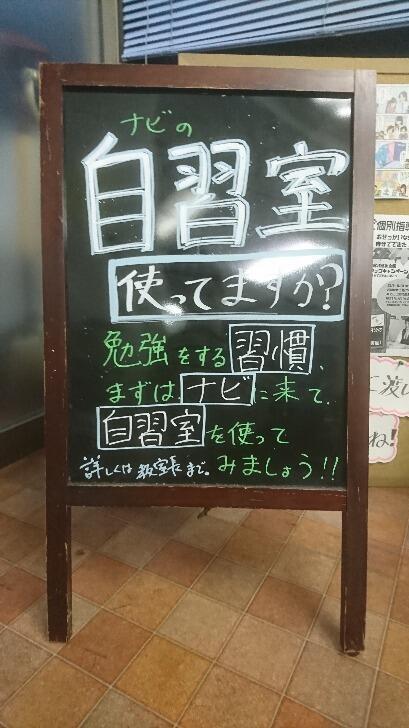 ナビの
自習室
使ってますか?
勉強をする習慣、
まずはナビに来て、
自習室を使って
みましょう!!
詳しくは教室長まで。
個別指導
に渡し
ね!